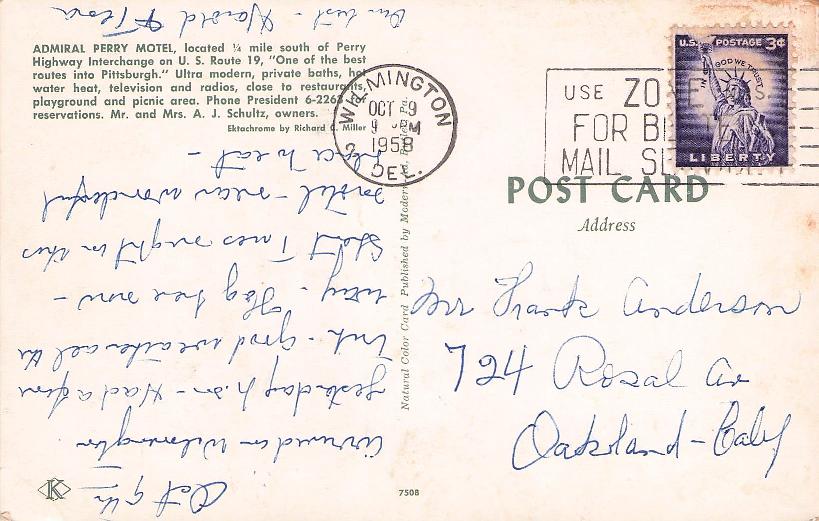 ADMIRAL PERRY MOTEL, located ¼ mile south of Perry
Highway Interchange on U. S. Route 19, "One of the best
routes into Pittsburgh." Ultra modern, private baths, hot
water heat, television and radios, close to restaurants,
playground and picnic area. Phone President 6-2263
reservations. Mr. and Mrs. A. J. Schultz, owners.
Ektachrome by Richard C. Miller
Oct 9th
Arrived in Wilmington
yesterday P.M - Had a fine
trip - good weather all the
way - Fog here now -
Spent Tues night in this
motel - near wonderful
place to eat -
Our best - Harold & Flora
Natural Color Card Published by Modern
K
7508
WILMINGTON
2
OCT 9
9 M
1958
DEL.
USE
FOR
MAIL
U.S. POSTAGE 3¢
IN GOD WE TRUST
LIBERTY
POST CARD
Address
Mr Frank Anderson
724 Rosal Av
Oakland - Calif